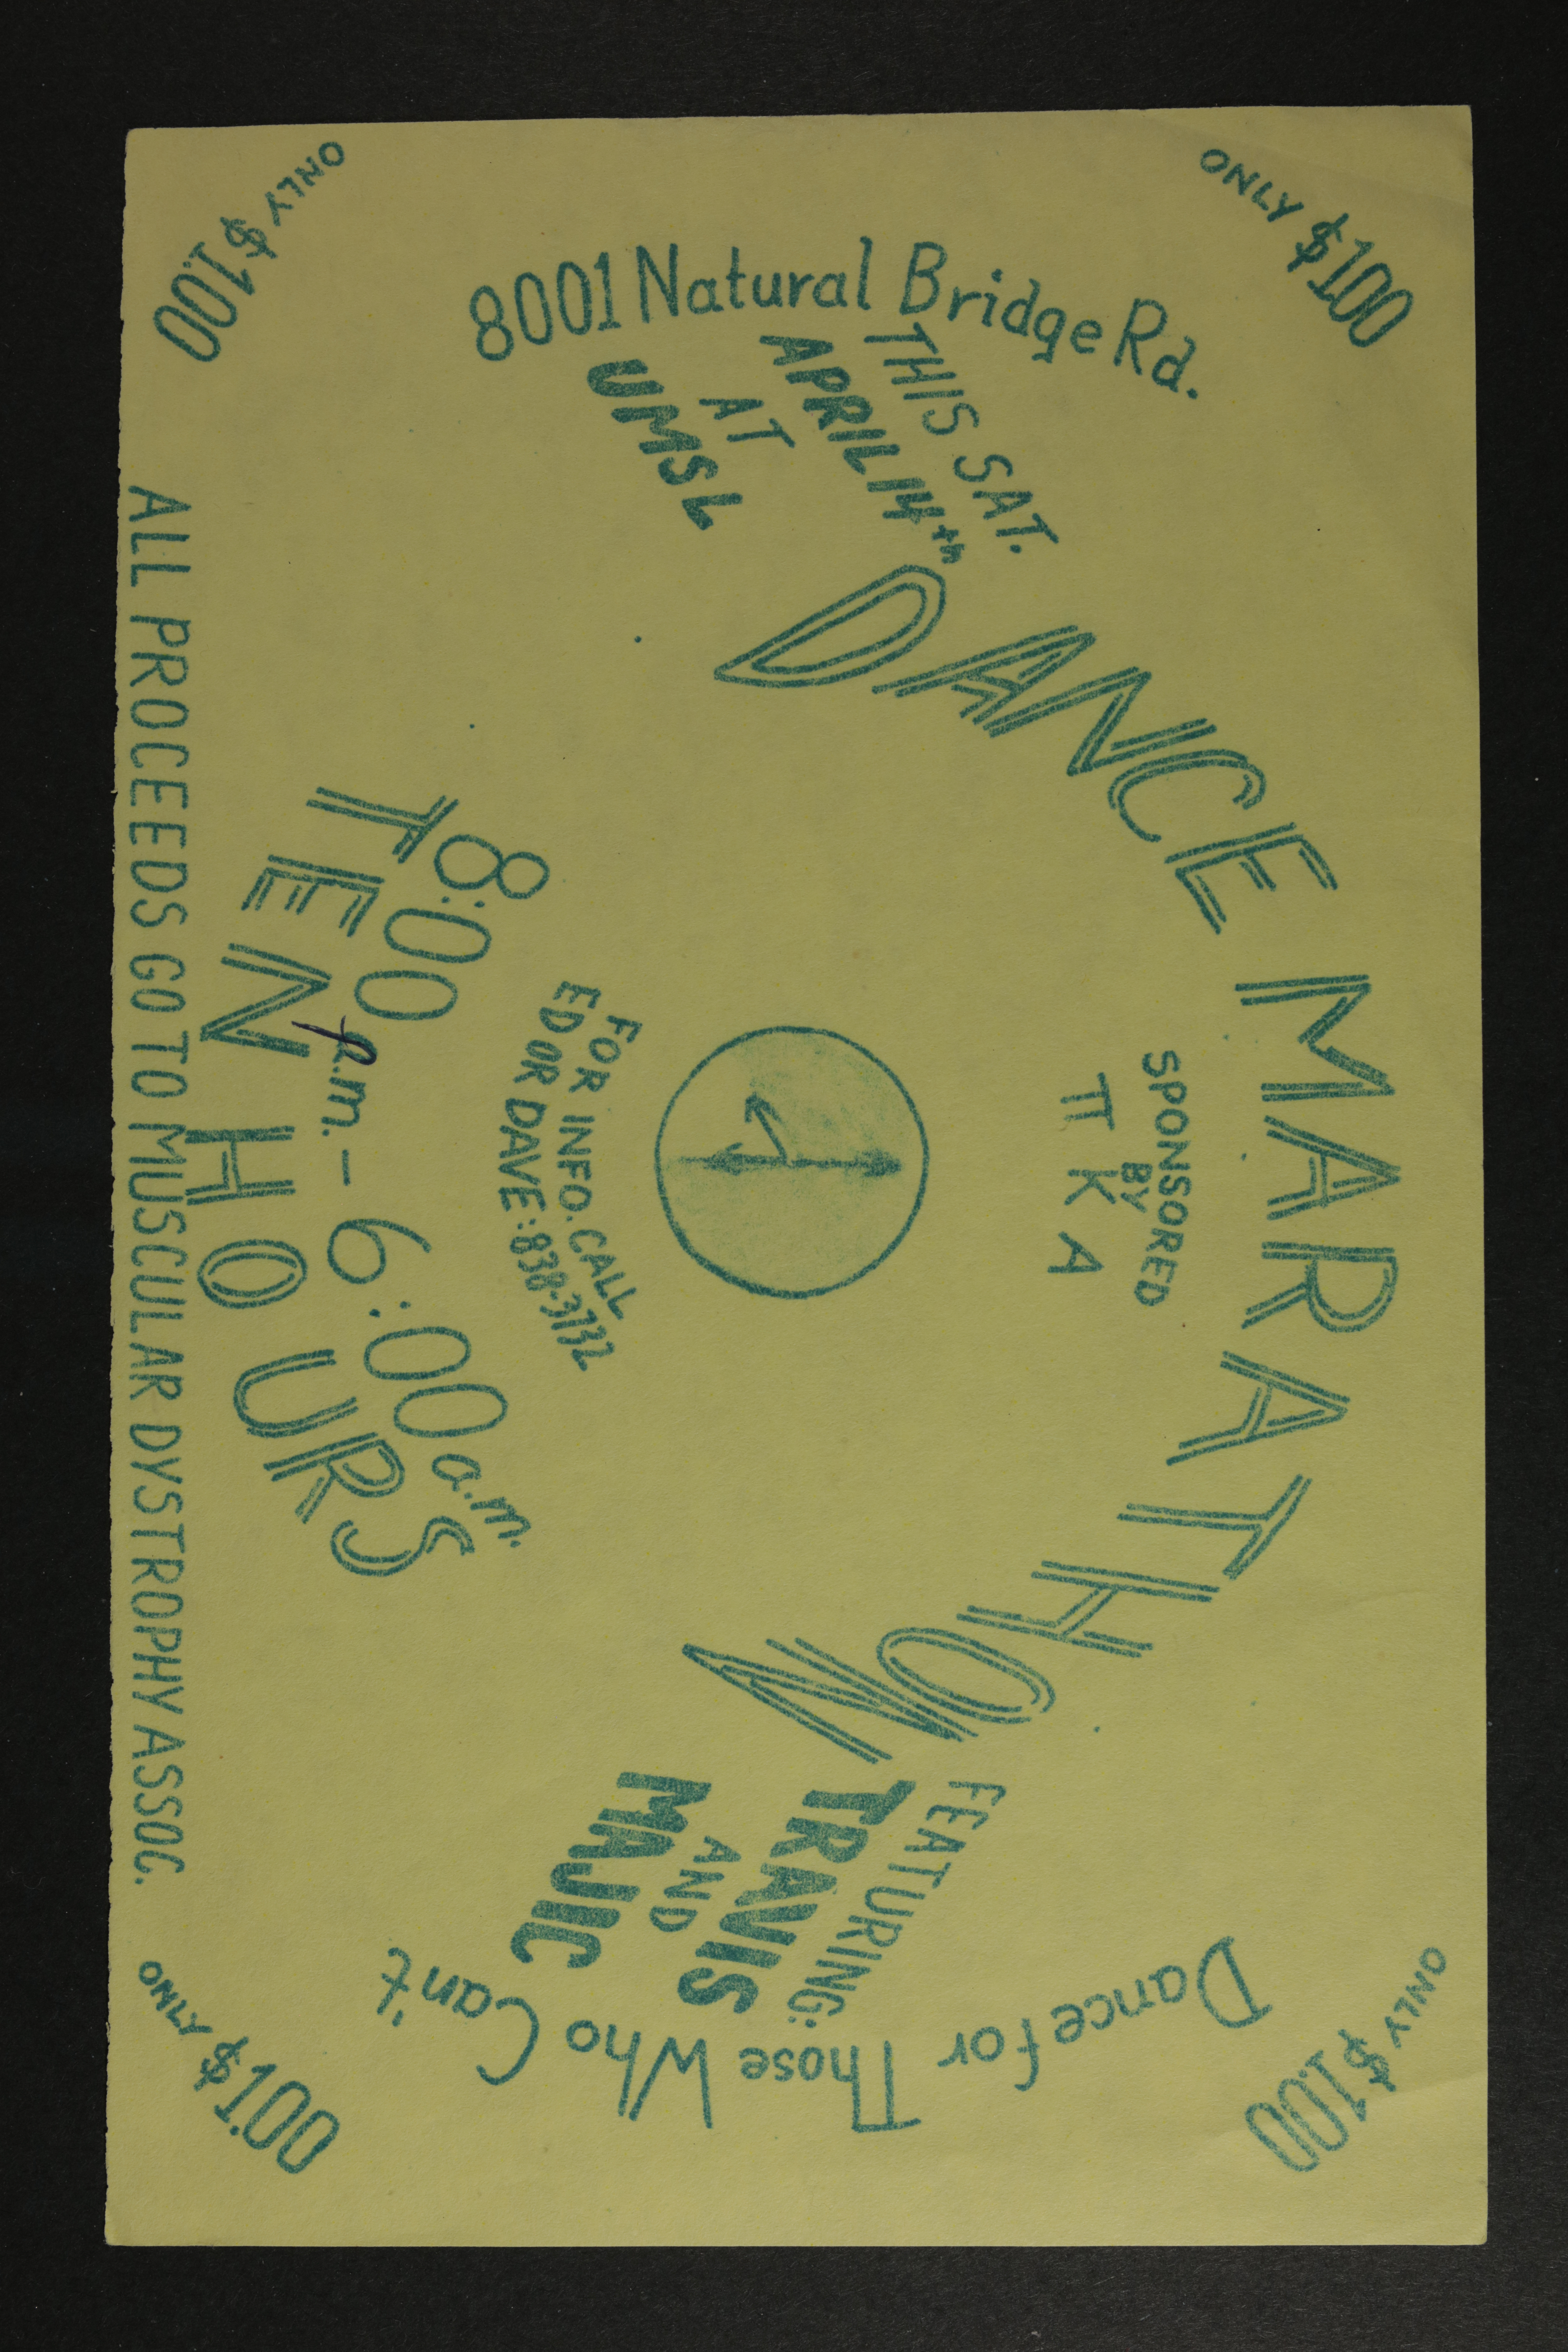 ONLY $1.00
ONLY $1.00
8001 Natural Bridge Rd.
Dance for Those Who Can't
DANCE MARATHON
THIS SAT.
APRIL 14th
AT
UMSL
SPONSORED
BY
π K A
FEATURING:
TRAVIS
AND
MAJIC
FOR INFO. CALL
ED OR DAVE: 838-3732
8:00 p.m. – 6:00 a.m.
TEN HOURS
ONLY $1.00
ONLY $1.00
ALL PROCEEDS GO TO MUSCULAR DYSTROPHY ASSOC.